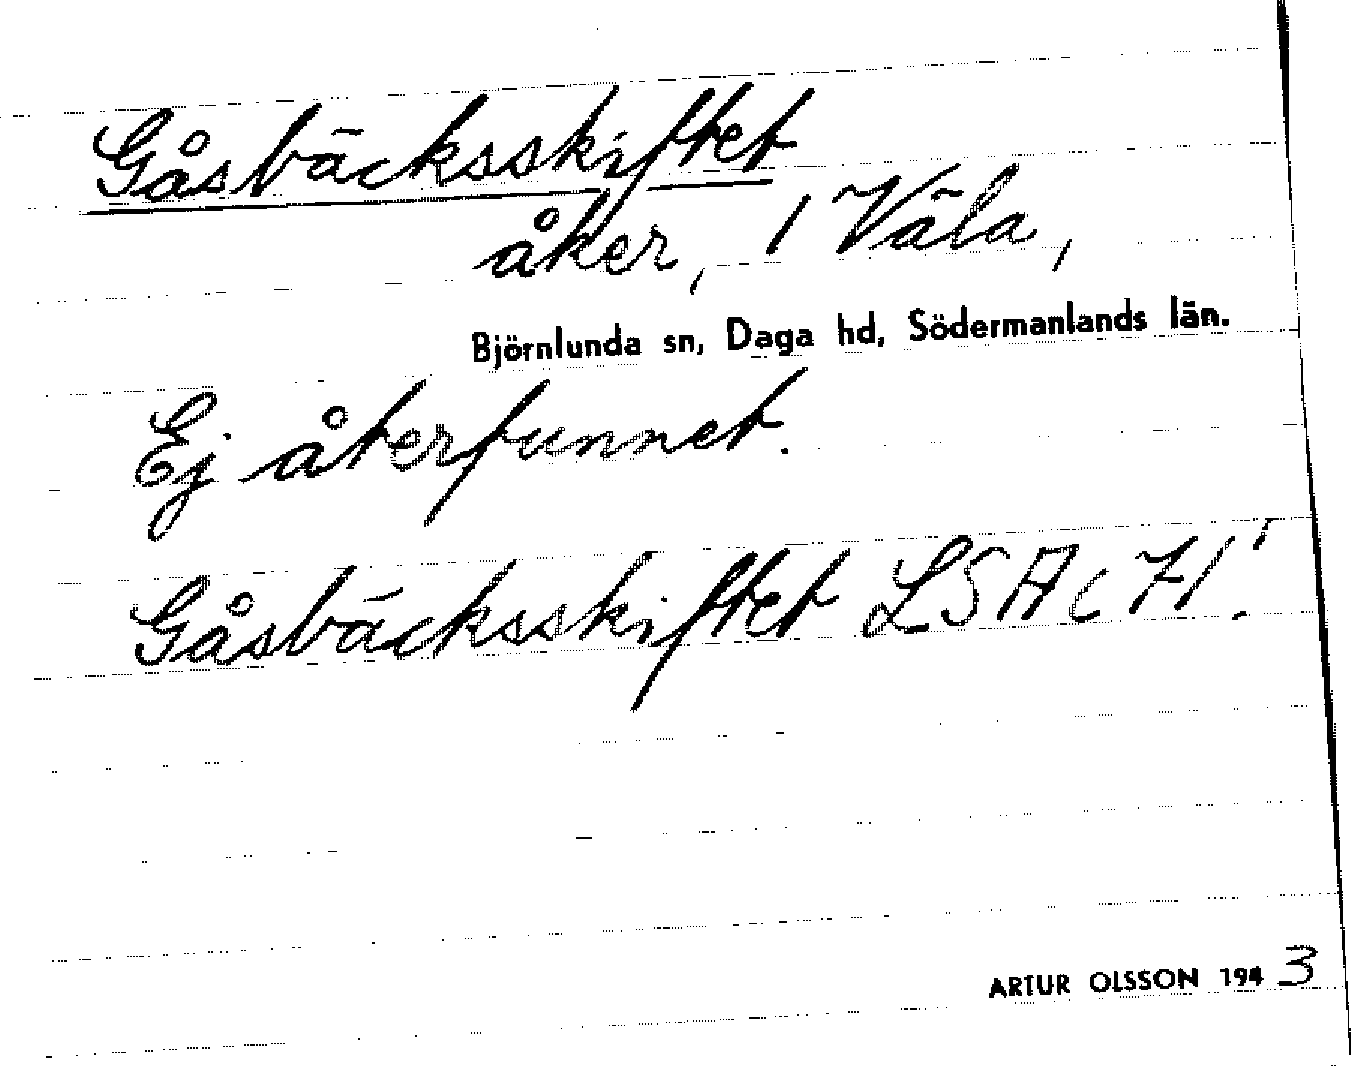 Gåsbäcksskiftet
åker, / Väla,
Björnlunda sn, Daga hd, Södermanlands län.
Ej återfunnet.
Gåsbäcksskiftet LSA C
ARTUR OLSSON 1943